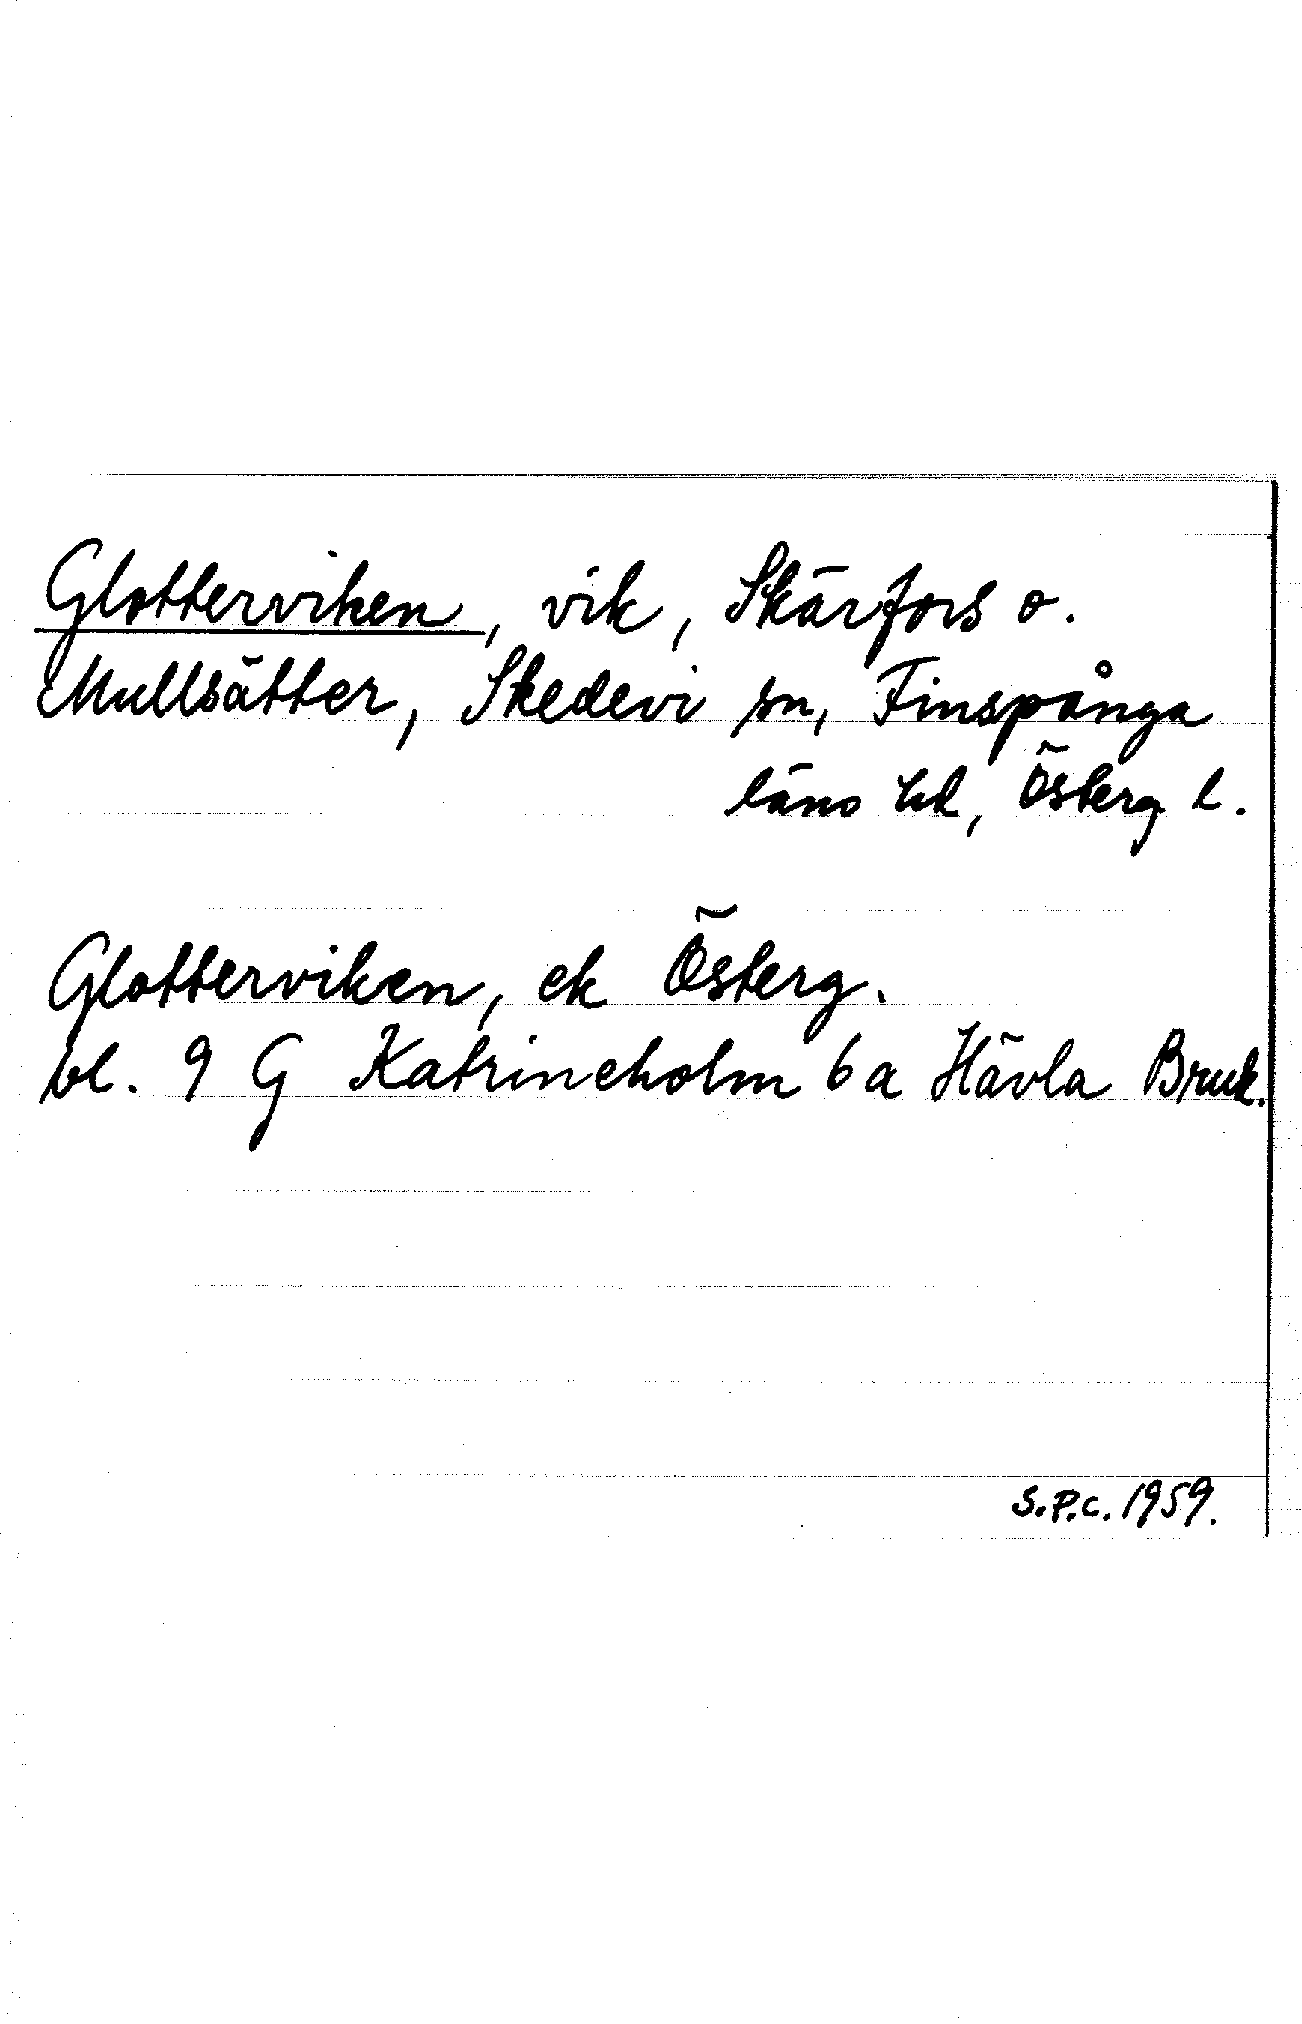 Glotterviken, vik, Skärfors o.
Mullsätter, Skedevi sn, Finspånga
läns hd, Österg l.
Glotterviken, ek Österg.
bl. 9 G Katrineholm 6a Hävla Bruk.
S.P.C. 1959.